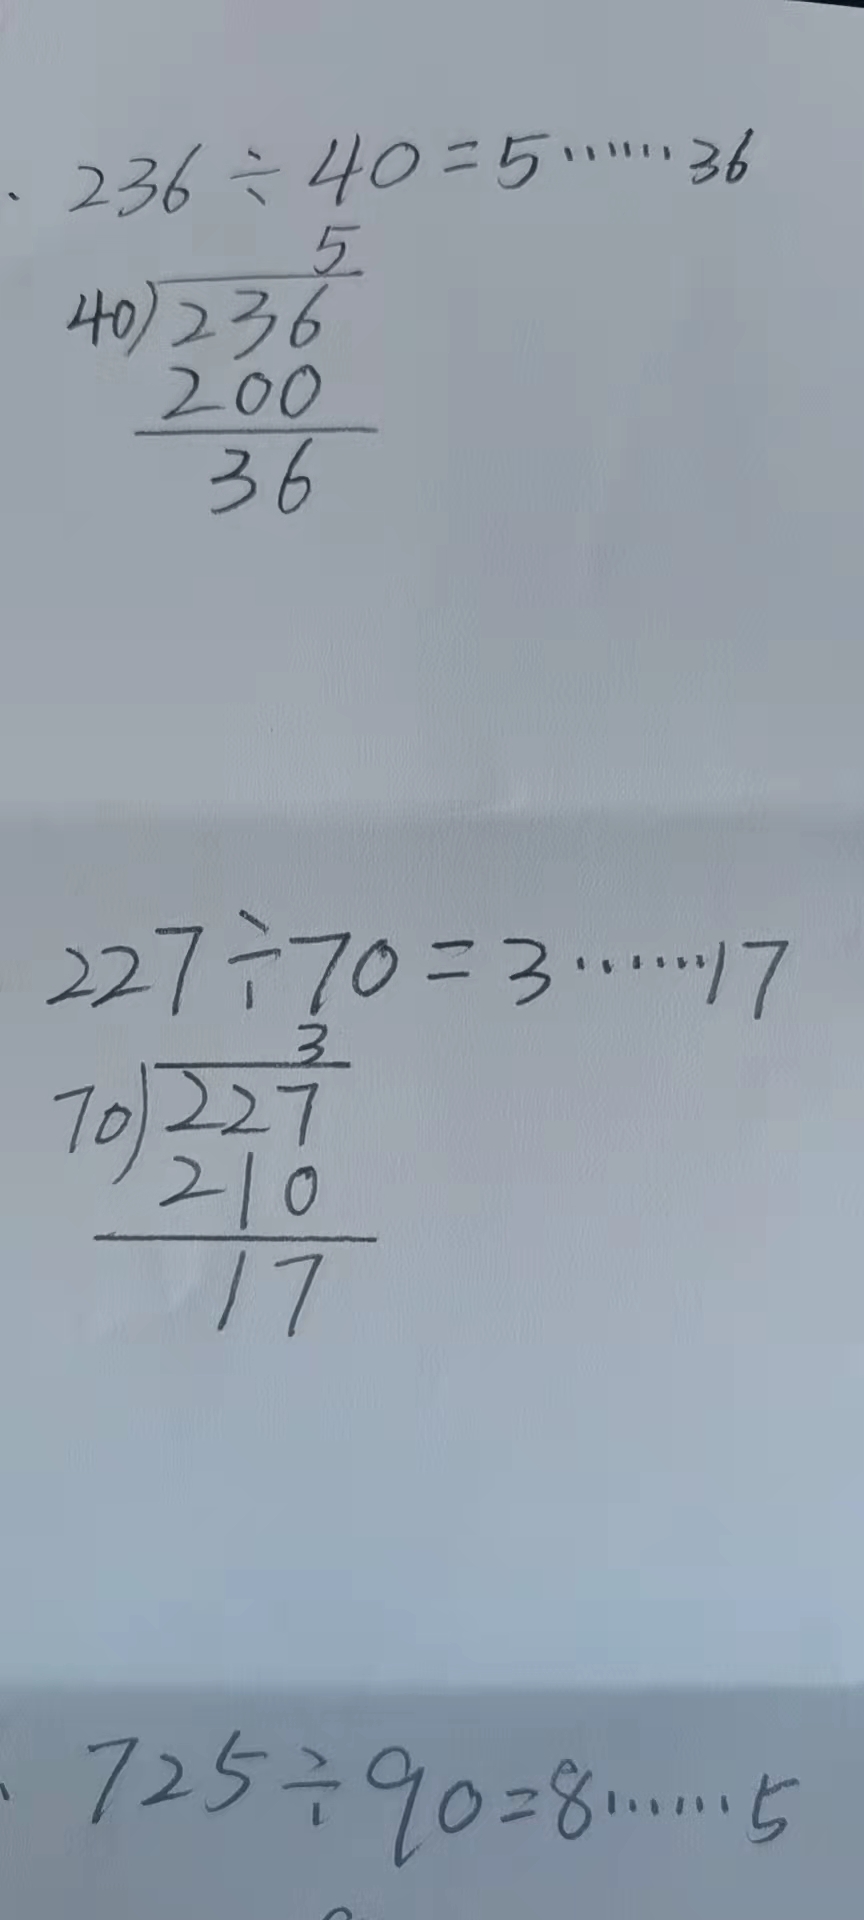 236÷40=5……36
5
40)236
200
36
227÷70=3……17
3
70)227
210
17
725÷90=8……5